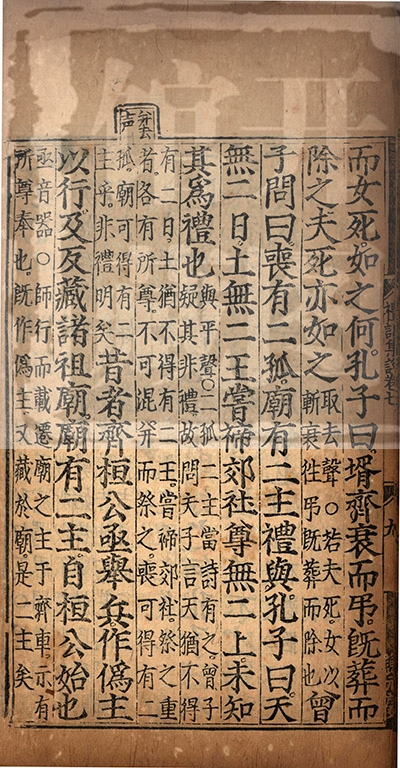 并去
声
禮記集說卷七
九
而女死。如之何。孔子曰。壻齊衰而吊。旣葬而
除之。夫死亦如之
取去聲○若夫死女以
斬衰徃弔旣葬而除也
曾
子問曰。喪有二孤。廟有二主。禮與。孔子曰。天
無二日。土無二王。嘗禘郊社。尊無二上。未知
其爲禮也
與平聲○二孤二主當時有之曾子
疑其非禮故問夫子言天猶不得
有二日土猶不得有二王嘗禘郊社祭之重
者各有所尊不可混并而祭之喪可得有二
孤廟可得有二
主乎非禮明矣
昔者齊桓公亟舉兵。作僞主
以行。及反。藏諸祖廟。廟有二主。自桓公始也
亟音器○師行而載遷廟之主于齊車示有
所尊奉也旣作僞主又藏於廟是二主矣